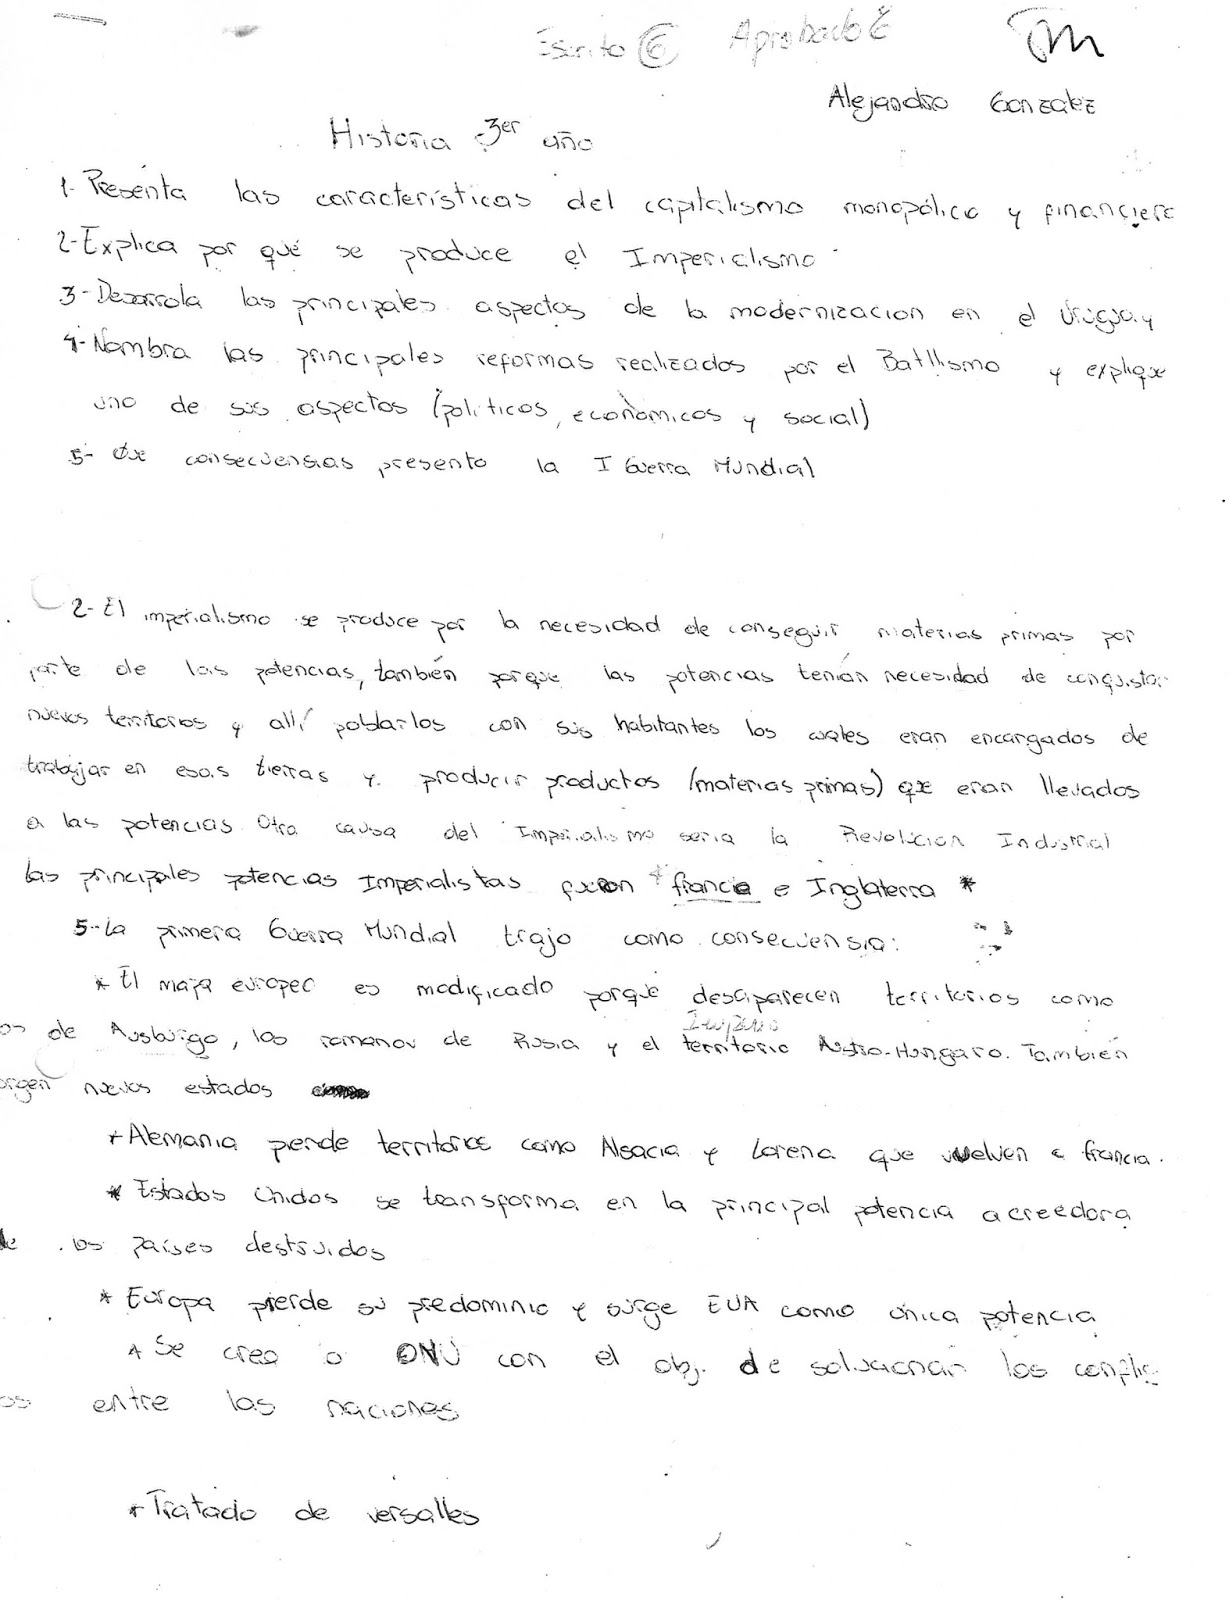 Escrito 6 Aprobado 6
Alejandro Gonzalez
Historia 3er año
1- Presenta las características del capitalismo monopólico y financiero
2- Explica por qué se produce el Imperialismo
3- Desarrola las principales aspectos de la modernizacion en el Uruguay
4- Nombra las principales reformas realizados por el Batllismo y explique
uno de sus aspectos (políticos, económicos y social)
5- Que consecuensias presento la I Guerra Mundial
2- El imperialismo se produce por la necesidad de conseguir materias primas por
parte de las potencias, también porque las potencias tenían necesidad de conquistar
nuevos territorios y allí poblarlos con sus habitantes los cuales eran encargados de
trabajar en esas tierras y producir productos (materias primas) que eran llevados
a las potencias. Otra causa del Imperialismo seria la Revolucion Industrial
Las principales potencias Imperialistas fueron * francia e Inglaterra *
5- La primera Guerra Mundial trajo como consecuensia:
* El mapa europeo es modificado porque desaparecen territorios como
os de Ausburgo, los romanov de Rusia y el territorio Astro-Hungaro. También
Imperio
orgen nuevos estados
* Alemania pierde territorios como Alsacia y Lorena que vuelven a francia.
* Estados Unidos se transforma en la principal potencia acreedora
de los países destruidos
* Europa pierde su predominio y surge EUA como única potencia
* Se crea o ONU con el obj. de solucionar los conflic
os entre las naciones
* Tratado de versalles